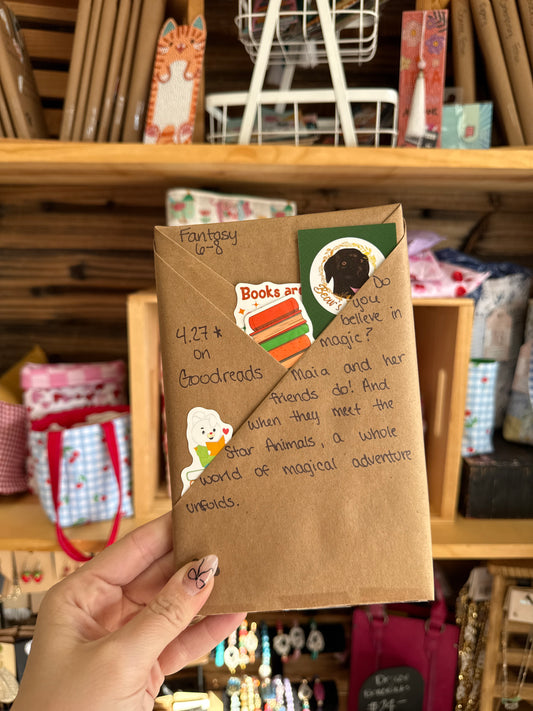 Fantasy
6-8
Books are
4.27 *
on
Goodreads
Do
you
believe in
magic?
Maia and her
friends do! And
when they meet the
Star Animals, a whole
world of magical adventure
unfolds.